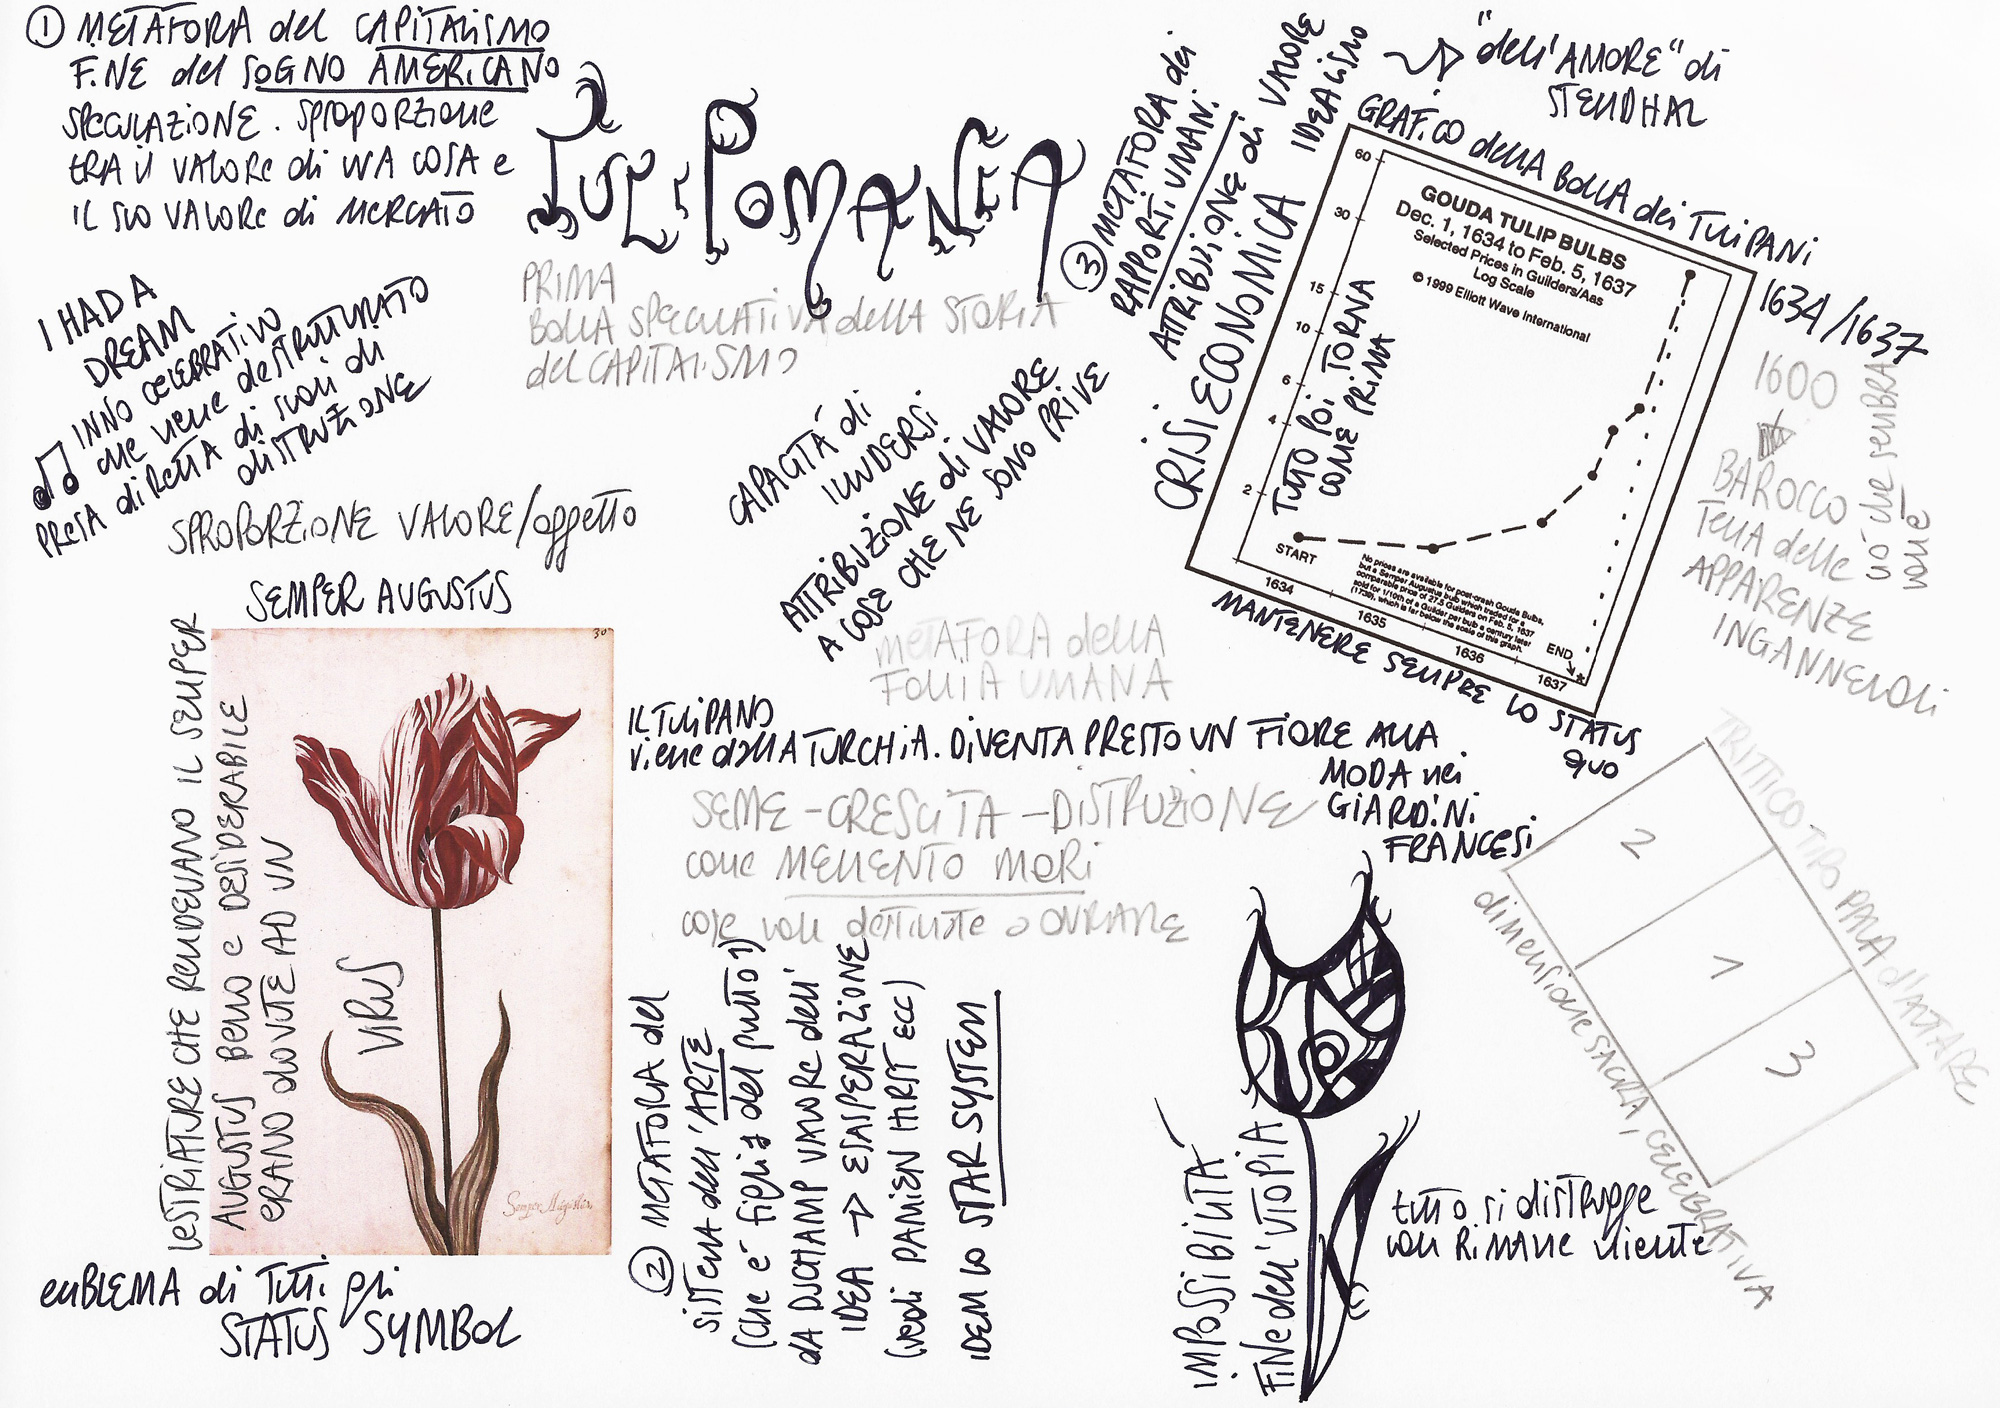 ① METAFORA del CAPITALISMO
FINE del SOGNO AMERICANO
SPECULAZIONE. SPROPORZIONE
TRA il VALORE di UNA COSA e
IL SUO VALORE di MERCATO
TULIPOMANIA
PRIMA
BOLLA SPECULATIVA della STORIA
del CAPITALISMO
I HAD A
DREAM
INNO CELEBRATIVO
che viene destrutturato
PRESA diRETTA di suoni di
diSTRUZIONE
SPROPORZIONE VALORE/oggetto
SEMPER AUGUSTUS
30
Semper Augustus
Le STRIATURE CHE RENDEVANO IL SEMPER
AUGUSTUS BELLO e DESIDERABILE
ERANO dOVUTE AD UN
VIRUS
emBLEMA di TUTTI gli
STATUS SYMBOL
CAPACITÀ di
ILLUDERSI
ATTRIBUZIONE di VALORE
A COSE CHE NE SONO PRIVE
METAFORA della
FOLLIA UMANA
IL TULIPANO
viene dALLA TURCHIA. DIVENTA PRESTO UN FIORE ALLA
MODA nei
GIARDINI
FRANCESI
SEME - CRESCITA - DISTRUZIONE
come MEMENTO MORI
cose non destinate a DURARE
② METAFORA del
SISTEMA dell'ARTE
(che è figlia del punto 1)
dA DUCHAMP VALORE dell'
IDEA → ESASPERAZIONE
(vedi DAMIEN HIRST ECC)
IDEM LO STAR SYSTEM
③ METAFORA dei
RAPPORTI UMANI
ATTRIBUZIONE di VALORE
IDEALISMO
CRISI ECONOMICA
"dell'AMORE" di
STENDHAL
GRAFICO dellA BOLLA dei TULIPANI
1634/1637
GOUDA TULIP BULBS
Dec. 1, 1634 to Feb. 5, 1637
Selected Prices in Guilders/Aas
Log Scale
© 1999 Elliott Wave International
60
30
15
10
6
4
2
TUTTO POI TORNA
COME PRIMA
START
No prices are available for post-crash Gouda Bulbs,
but a Semper Augustus bulb which traded for a
comparable price of 27.5 Guilders on Feb. 5, 1637
sold for 1/10th of a Guilder per bulb a century later
(1739), which is far below the scale of this graph.
END
1634
1635
1636
1637
MANTENERE SEMPRE LO STATUS
quo
1600
BAROCCO
TEMA delle
APPARENZE
INGANNEVOLI
ciò che SEMBRA
non è
TRITTICO TIPO PALA d'ALTARE
2
1
3
dimensione SACRA, CELEBRATIVA
IMPOSSIBILITÀ
FINE dell'UTOPIA
tutto si distrugge
non RIMANE niente